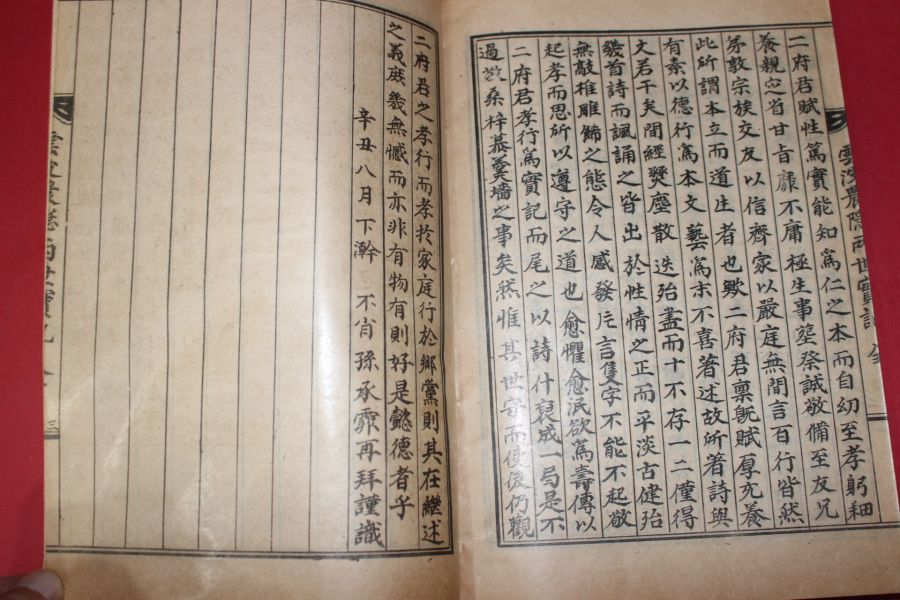 雲沙農隱兩世實記 全
二府君賦性篤實能知爲仁之本而自幼至孝躬細
養親必省甘旨靡不庸極生事葬祭誠敬備至友兄
弟敦宗族交友以信齊家以嚴庭無間言百行皆然
此所謂本立而道生者也歟二府君稟旣賦厚充養
有素以德行爲本文藝爲末不喜著述故所著詩與
文若干矣閱經燹塵散迭殆盡而十不存一二僅得
幾首詩而諷誦之皆出於性情之正而平淡古健殆
無敲椎雕飾之態令人感發片言隻字不能不起敬
起孝而思所以遵守之道也愈懼愈泯欲爲壽傳以
二府君孝行篤實記而尾之以詩什裒成一局是不
過敬桑梓慕羹墻之事矣然惟其世守而使後仍觀
二府君之孝行而孝於家庭行於鄉黨則其在繼述
之義庶幾無憾而亦非有物有則好是懿德者乎
辛丑八月下澣 不肖孫承霏再拜謹識